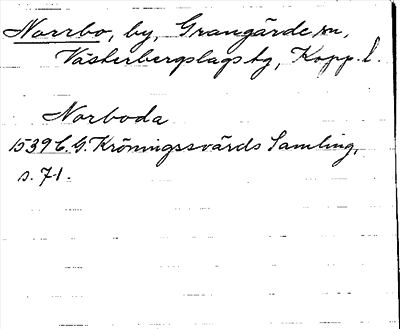 Norrbo, by, Grangärde sn,
Västerbergslags tg, Kopp. l.
Norboda
1539 C. G. Kröningssvärds Samling,
s. 71.